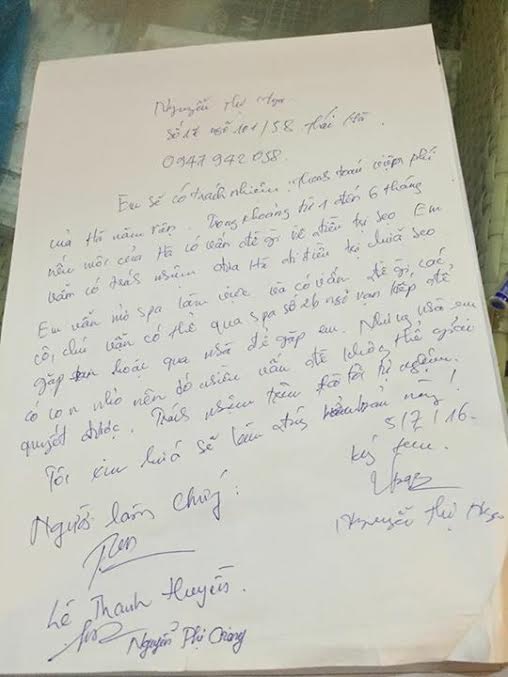 Nguyễn Thị Nga
Số 17 ngõ 101/58 Thái Hà.
0947 942 058.
Em sẽ có trách nhiệm thanh toán viện phí
của Hà nằm viện. Trong khoảng từ 1 đến 6 tháng
nếu môi của Hà có vấn đề gì về điều trị sẹo Em
vẫn có trách nhiệm đưa Hà đi điều trị chữa sẹo
Em vẫn mở spa làm việc và có vấn đề gì, các
cô, chú vẫn có thể qua spa số 26 ngõ vạn kiếp để
gặp hoặc qua nhà để gặp em. Nhưng nhà em
có con nhỏ nên đó nhiều vấn đề không thể giải
quyết được. Trách nhiệm
Tôi xin hứa sẽ làm đúng này!
5/7/16.
ký tên.
Người làm chứng: Nguyễn Thị Nga
Lê Thanh Huyền.
Nguyễn Thị